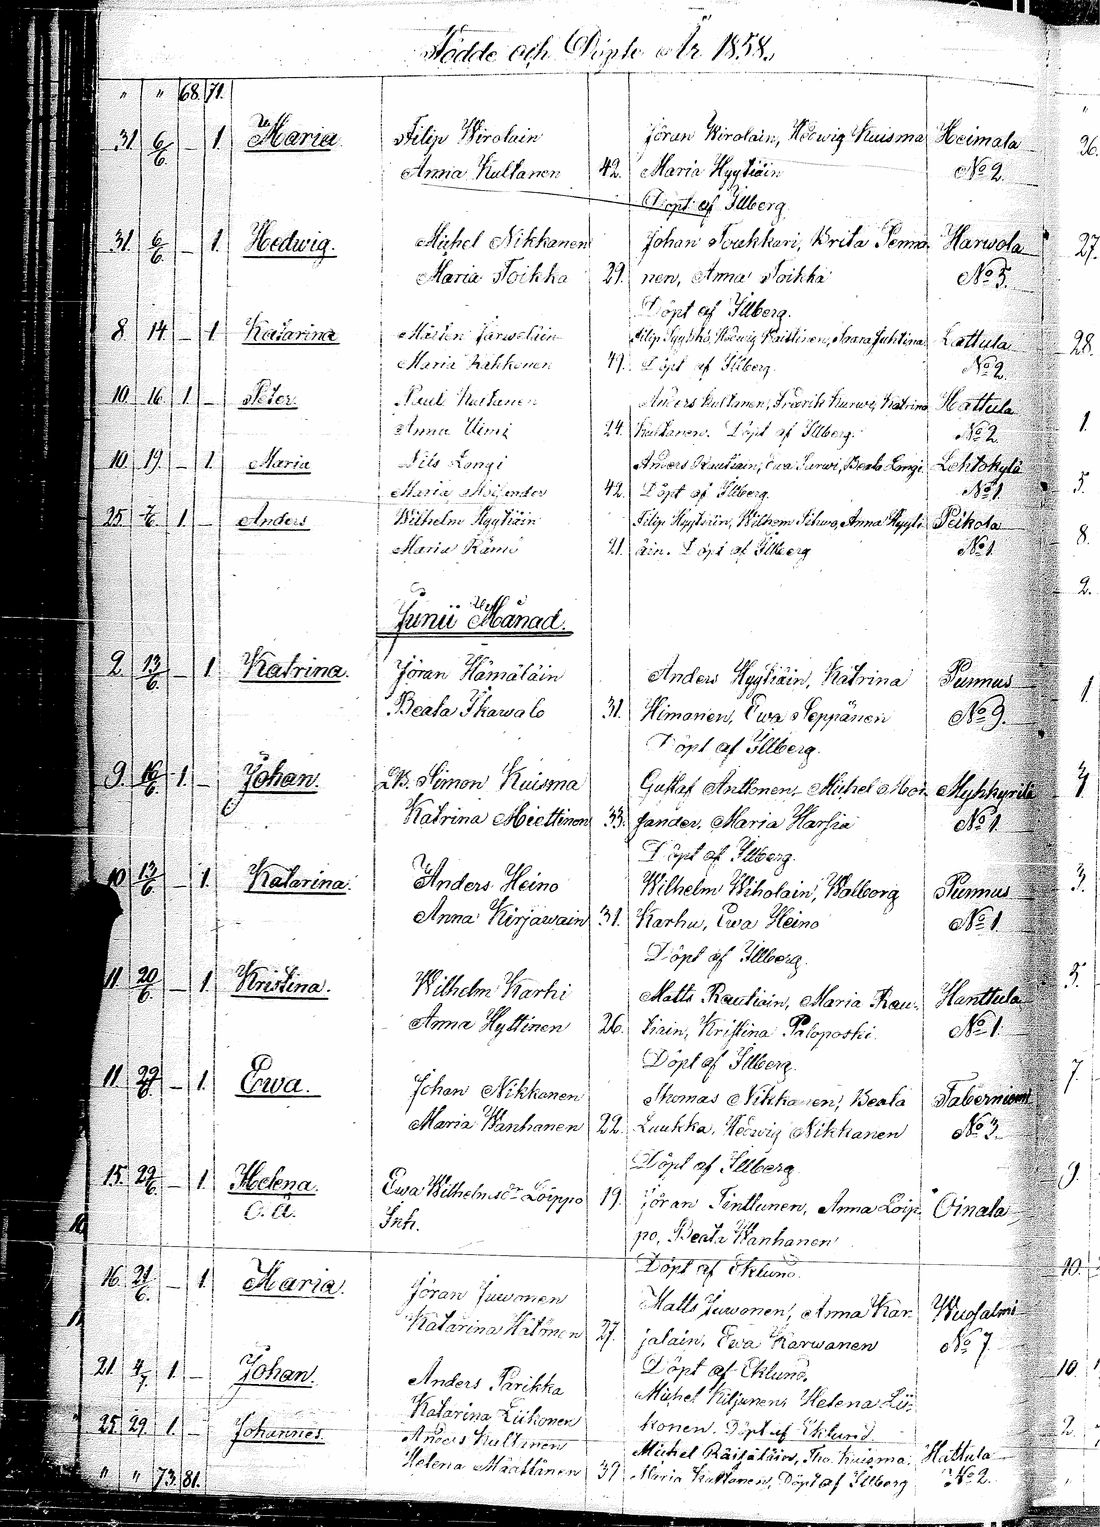 Födde och Döpte År 1858.
" " 68. 71.
31. 6/6 – 1. Maria. Filip Wirolain Jöran Wirolain, Hedwig Kuisma Heimala
Anna Kultanen 42. Maria Hyytiäin No 2.
Döpt af Illberg.
31. 6/6 – 1. Hedwig. Michel Nikkanen Johan Torakkari, Brita Penna- Harwola
Maria Toikka 29. nen, Anna Toikka No 5.
Döpt af Illberg.
8. 14. – 1. Katarina Mårten Jarwelain Filip Hedwig Lattula
Maria Kekkonen 49. Döpt af Illberg. No 2.
10. 16. 1. Peter. Paul Kultanen Anders Kultanen, Fredrik Kurwi, Katrina Hattula
Anna Uimi 24. Kultanen. Döpt af Illberg. No 2.
10. 19. – 1. Maria Nils Longi Anders Rautiain, Ewa Turwi, Beata Longi Lehtokylä
Maria Moisander 42. Döpt af Illberg. No 1.
25. 1. – Anders Wilhelm Hyytiäin Filip Hyytiäin, Wilhelm Anna Hyyti- Peikola
Maria Rämö 21. äin. Döpt af Illberg No 1.
Junii Månad.
2. 13/6 – 1. Katrina. Jöran Hämäläin Anders Hyytiäin, Katrina Punnus
Beata Ikawalo 31. Himanen, Ewa Seppänen No 9.
Döpt af Illberg.
9. 16/6 1. – Johan. Simon Kuisma Gustaf Anttonen, Michel Moi- Myhkyrilä
Katrina Miettinen 33. sander, Maria Harsia No 1.
Döpt af Illberg.
10 13/6 – 1. Katarina. Anders Heino Wilhelm Wiholain, Walborg Punnus
Anna Kirjawain 31. Karhu, Ewa Heino No 1.
Döpt af Illberg.
11 20/6 – 1. Kristina. Wilhelm Karhi Matts Rautiain, Maria Rau- Hanttula
Anna Hyttinen 26. tiain, Kristina Paloposki. No 1.
Döpt af Illberg.
11 29/6 – 1. Ewa. Johan Nikkanen Thomas Nikkanen, Beata Taberniemi
Maria Wanhanen 22. Luukka. Hedwig Nikkanen No 3.
Döpt af Illberg
15. 29/6 – 1. Helena. Ewa Wilhelmsdr Loippo 19. Jöran Tinttunen, Anna Loip- Oinala
O. Ä. Inh. po, Beata Wanhanen
Döpt af Eklund.
16. 21/6 – 1. Maria. Jöran Juwonen Matts Juwonen, Anna Kar- Wuosalmi
Katarina Hätönen 27. jalain, Ewa Karwanen No 7
Döpt af Eklund.
21. 4/7 1. – Johan. Anders Parikka Michel Kiljunen, Helena Lii-
Katarina Liikonen konen. Döpt af Eklund
25. 29. 1. – Johannes. Anders Kultanen Michel Räisäläin, Tho. Kuisma, Hattula
" " 73. 81. Helena Määttänen 39 Maria Kultanen, Döpt af Illberg No 2.